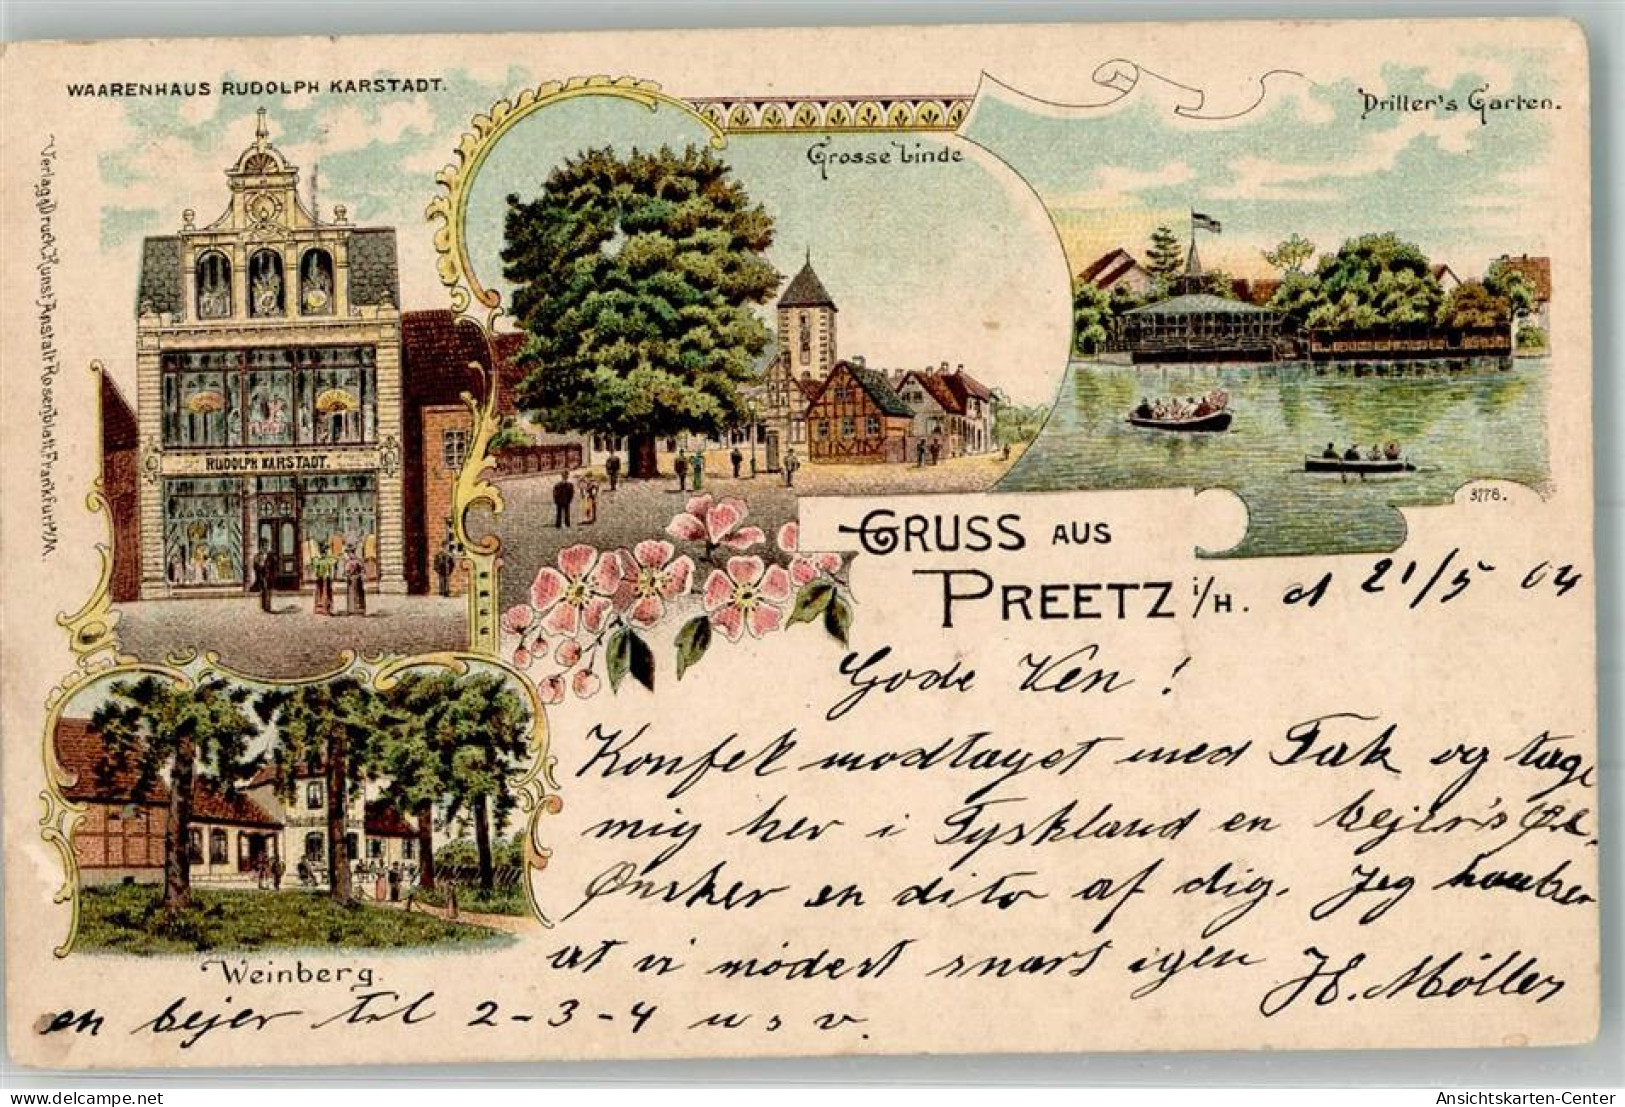 WAARENHAUS RUDOLPH KARSTADT.
Grosse Linde
Driller's Garten.
Verlag & Druck, Kunst Anstalt Rosenblatt, Frankfurt a/M.
RUDOLPH KARSTADT.
3778.
GRUSS AUS
PREETZ i/H. d 21/5 04
Gode Ven!
Konfek modtaget med Tak og tage
mig her i Tyskland en bejer's Øl.
Ønsker en dito af dig. Jeg haaber
at vi mødest snart igen H. Möller
Weinberg.
en bejer til 2-3-4 u s v.
Ansichtskarten-Center